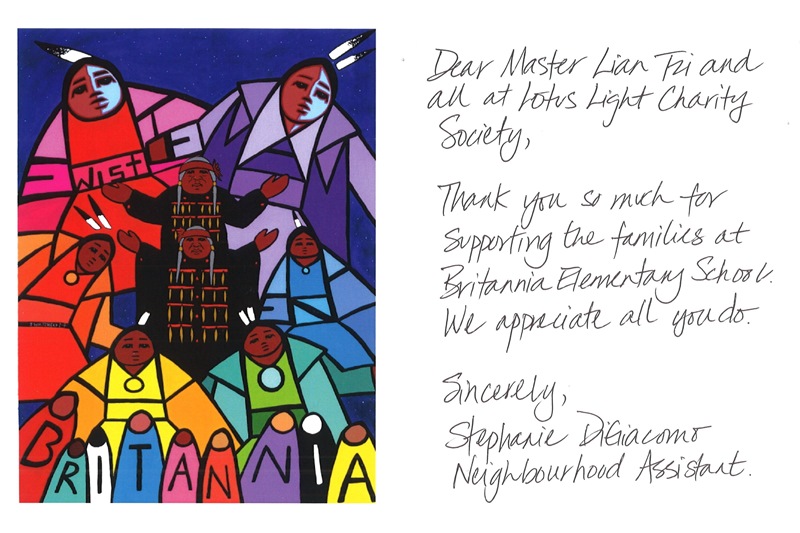 WIST
BRITANNIA
Dear Master Lian Tzi and
all at Lotus Light Charity
Society,
Thank you so much for
supporting the families at
Britannia Elementary School.
We appreciate all you do.
Sincerely,
Stephanie DiGiacomo
Neighbourhood Assistant.